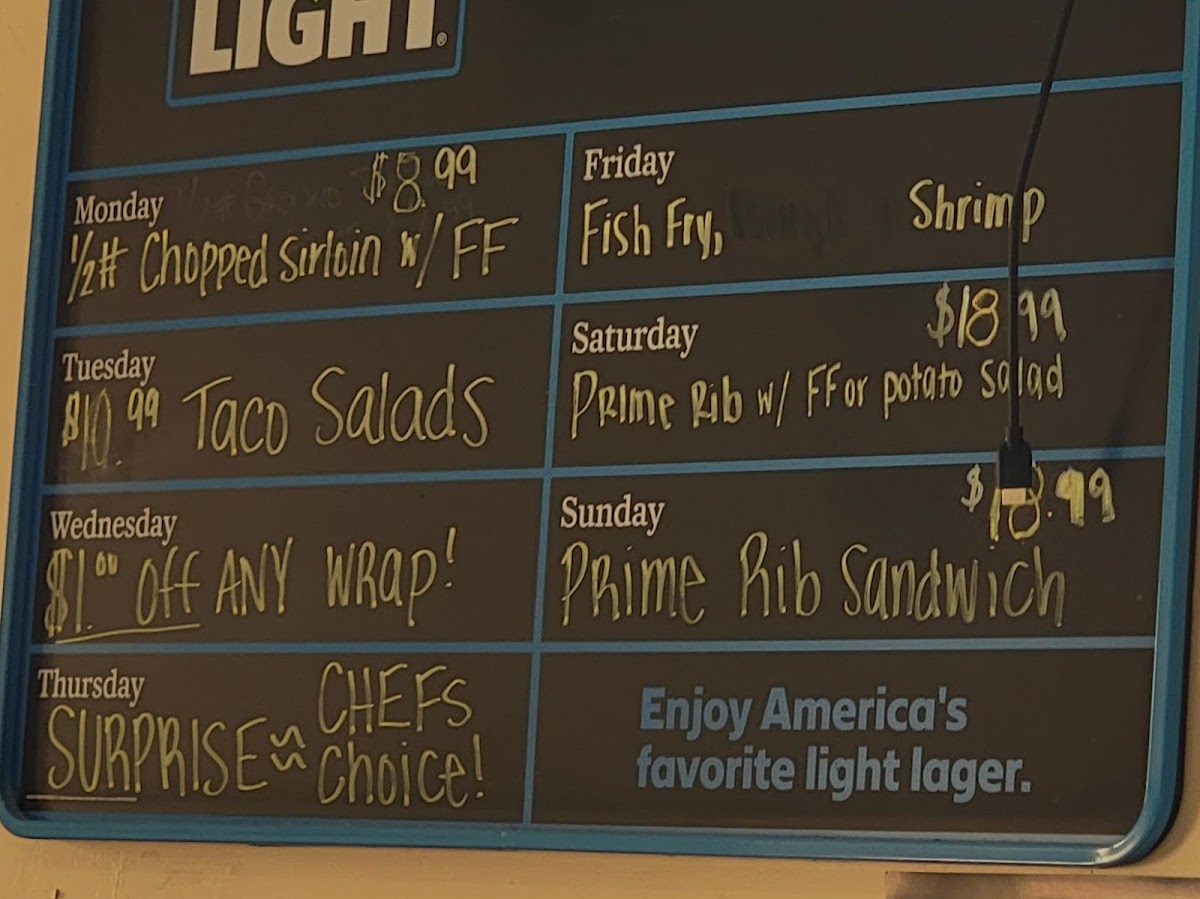 LIGHT®
Monday $8.99
1/2# Chopped Sirloin w/ FF
Tuesday
$10.99 Taco Salads
Wednesday
$1.00 off ANY WRap!
Thursday
SURPRISE ~ CHEFS
Choice!
Friday
Fish Fry, Shrimp
Saturday $18.99
PRime Rib w/ FF or potato Salad
Sunday $18.99
PRime Rib Sandwich
Enjoy America's
favorite light lager.